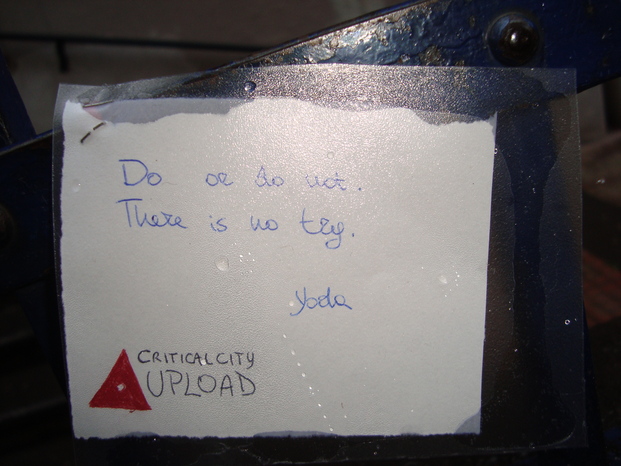 Do or do not.
There is no try.
Yoda
CRITICAL CITY
UPLOAD